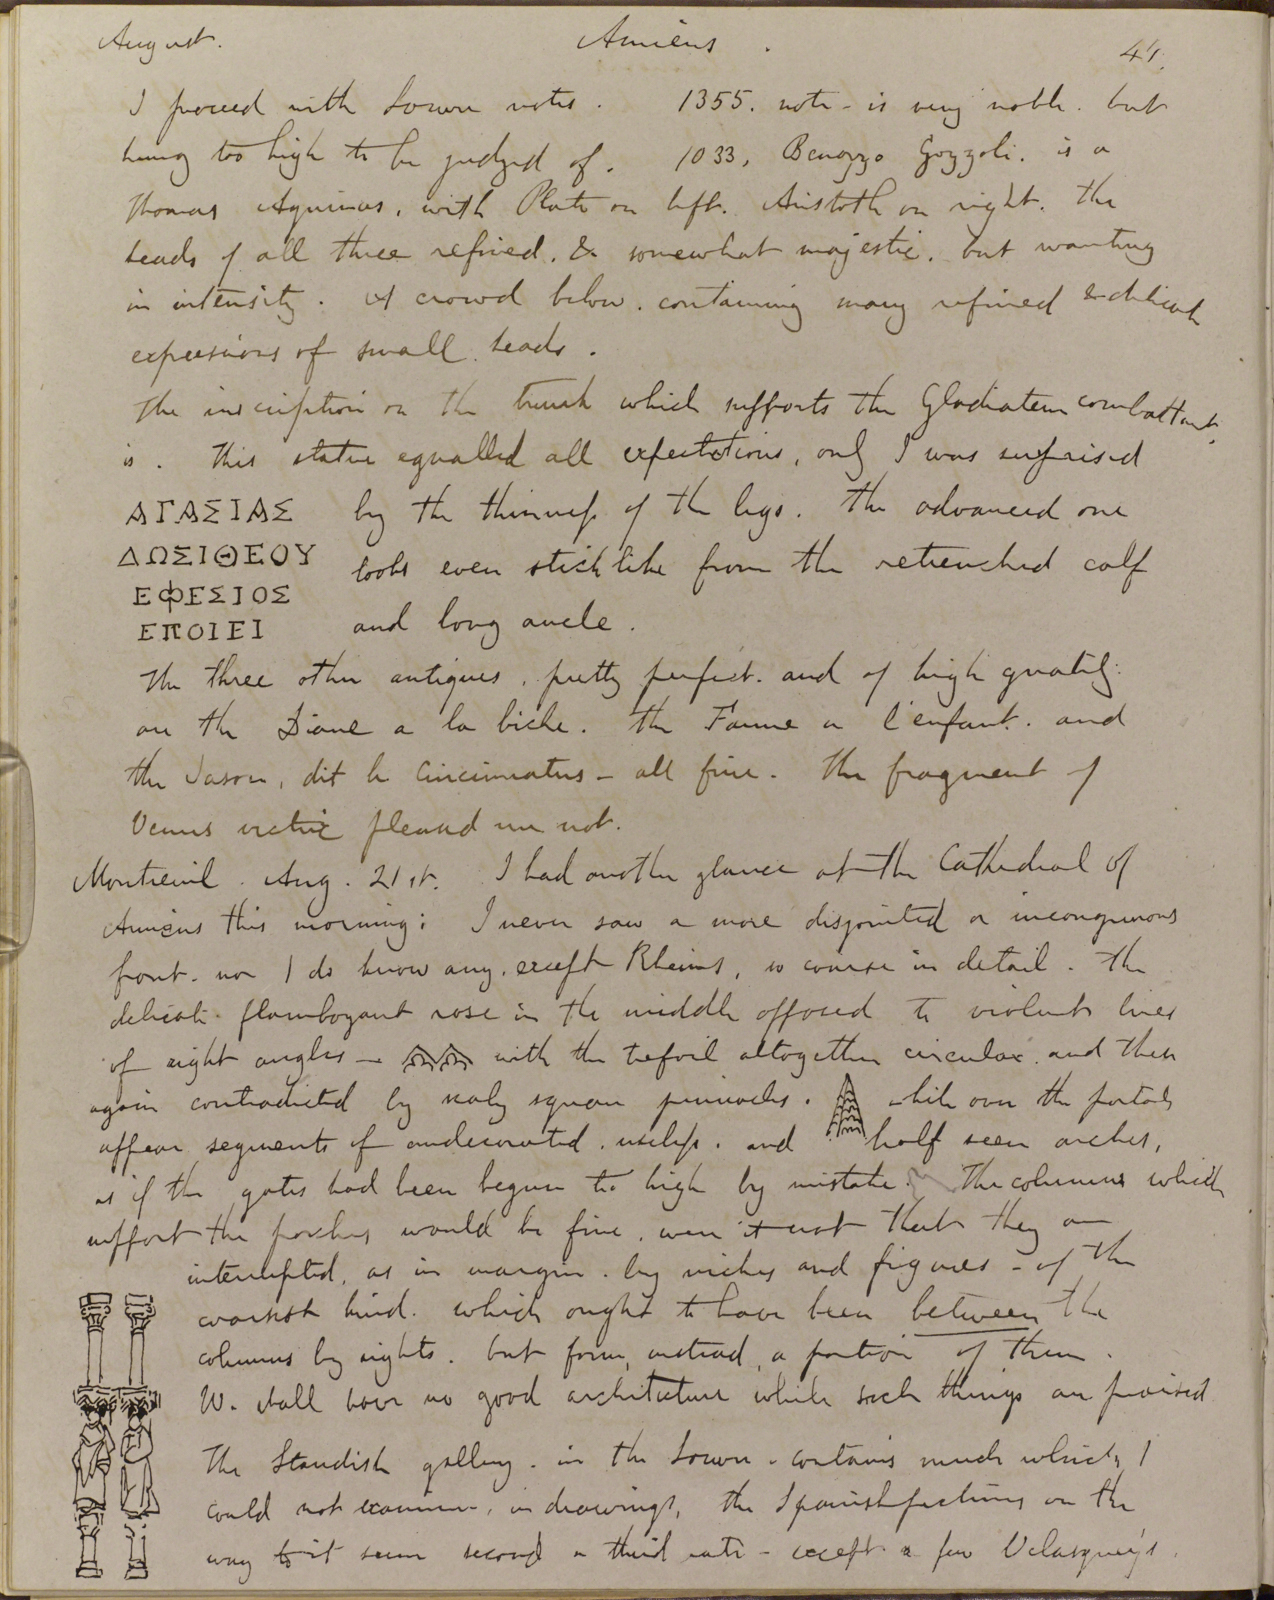 August. Amiens . 41.
I proceed with Louvre notes . 1355. note - is very noble. but
hung too high to be judged of. 1033, Benozzo Gozzoli. is a
Thomas Aquinas, with Plato on left. Aristotle on right. The
heads of all three refined, & somewhat majestic, but wanting
in intensity. A crowd below. containing many refined & delicate
expressions of small heads .
The inscription on the trunk which supports the Gladiateur combattant,
is . This statue equalled all expectations, only I was surprised
ΑΓΑΣΙΑΣ by the thinness of the legs. The advanced one
ΔΩΣΙΘΕΟΥ looks even sticklike from the retrenched calf
ΕΦΕΣΙΟΣ
ΕΠΟΙΕΙ and long ancle .
The three other antiques, pretty perfect. and of high quality.
are the Diane a la biche. The Faune a l'enfant. and
the Jason, dit le Cincinnatus - all fine. The fragment of
Venus victrix pleased me not.
Montreuil . Aug. 21st. I had another glance at the Cathedral of
Amiens this morning: I never saw a more disjointed or incongruous
front. nor I do know any, except Rheims, so coarse in detail. The
delicate flamboyant rose in the middle opposed to violent lines
of right angles - with the trefoil altogether circular. and these
again contradicted by scaly square pinnacles. while over the portals
appear segments of undecorated, useless. and half seen arches,
as if the gates had been begun too high by mistake. The columns which
support the porches would be fine, were it not that they are
interrupted, as in margin. by niches and figures - of the
coarsest kind. which ought to have been between the
columns by rights. but form, instead, a portion of them.
We shall have no good architecture while such things are praised
The Standish gallery. in the Louvre. contains much which I
could not examine, in drawings, the Spanish pictures on the
way to it seem second or third rate - except a few Velasquez's.